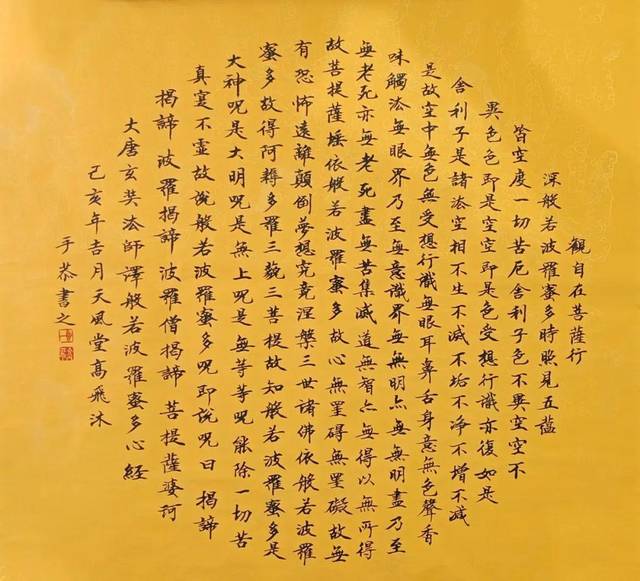 觀自在菩薩行
深般若波羅蜜多時照見五蘊
皆空度一切苦厄舍利子色不異空空不
異色色即是空空即是色受想行識亦復如是
舍利子是諸法空相不生不滅不垢不淨不增不減
是故空中無色無受想行識無眼耳鼻舌身意無色聲香
味觸法無眼界乃至無意識界無無明亦無無明盡乃至
無老死亦無老死盡無苦集滅道無智亦無得以無所得
故菩提薩埵依般若波羅蜜多故心無罣碍無罣礙故無
有恐怖遠離顛倒夢想究竟涅槃三世諸佛依般若波羅
蜜多故得阿耨多羅三藐三菩提故知般若波羅蜜多是
大神呪是大明呪是無上呪是無等等呪能除一切苦
真實不虛故說般若波羅蜜多呪即說呪曰 揭諦
揭諦 波羅揭諦 波羅僧揭諦 菩提薩婆訶
大唐玄奘法師譯般若波羅蜜多心經
己亥年吉月天風堂高飛沐
手恭書之